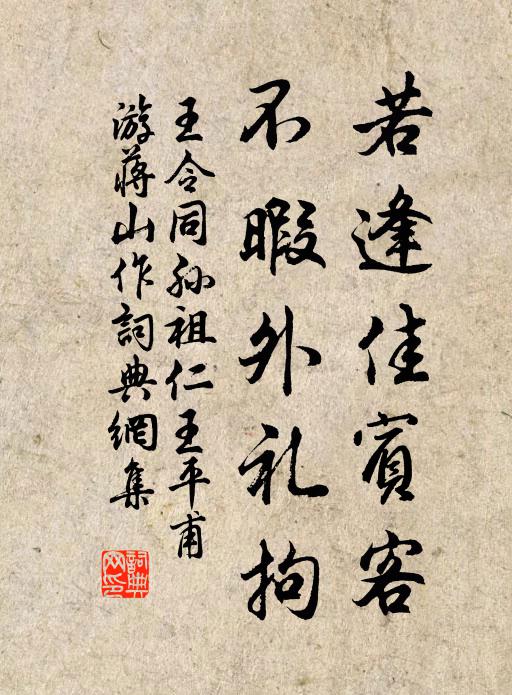 若逢佳賓客
不暇外礼拘
王令同孙祖仁王平甫
游蔣山作詞典網集
詞典
网印